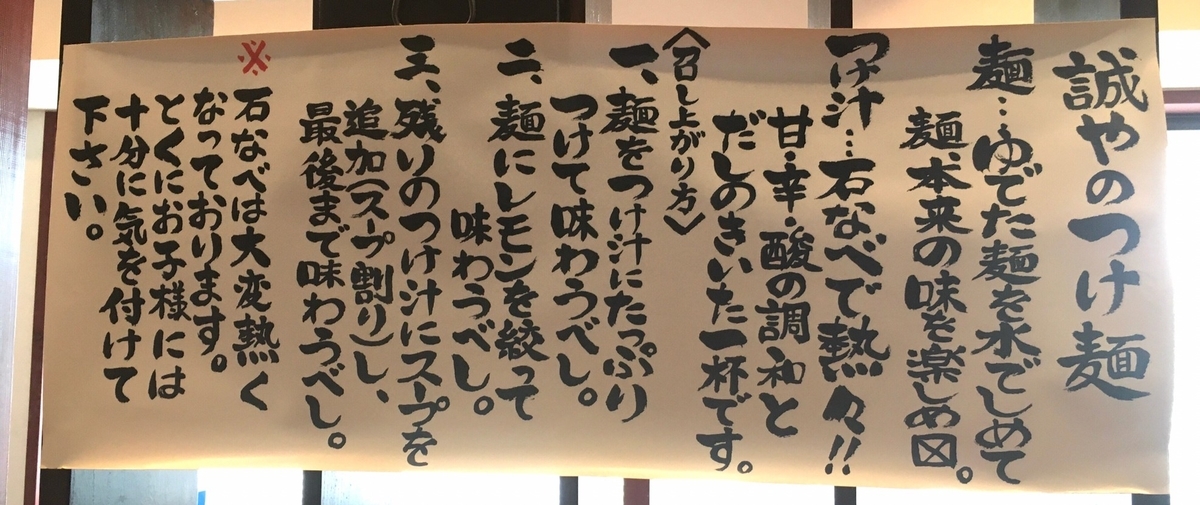 誠やのつけ麺
麺…ゆでた麺を水でしめて
麺本来の味を楽しめ〼。
つけ汁…石なべで熱々!!
甘・辛・酸の調和と
だしのきいた一杯です。
〈召し上がり方〉
一、麺をつけ汁にたっぷり
つけて味わうべし。
二、麺にレモンを絞って
味わうべし。
三、残りのつけ汁にスープを
追加(スープ割り)し、
最後まで味わうべし。
※石なべは大変熱く
なっております。
とくにお子様には
十分に気を付けて
下さい。